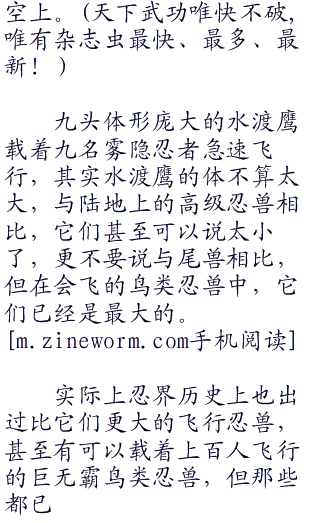 空上。(天下武功唯快不破,
唯有杂志虫最快、最多、最
新！)
九头体形庞大的水渡鹰
载着九名雾隐忍者急速飞
行，其实水渡鹰的体不算太
大，与陆地上的高级忍兽相
比，它们甚至可以说太小
了，更不要说与尾兽相比，
但在会飞的鸟类忍兽中，它
们已经是最大的。
[m.zineworm.com手机阅读]
实际上忍界历史上也出
过比它们更大的飞行忍兽，
甚至有可以载着上百人飞行
的巨无霸鸟类忍兽，但那些
都已